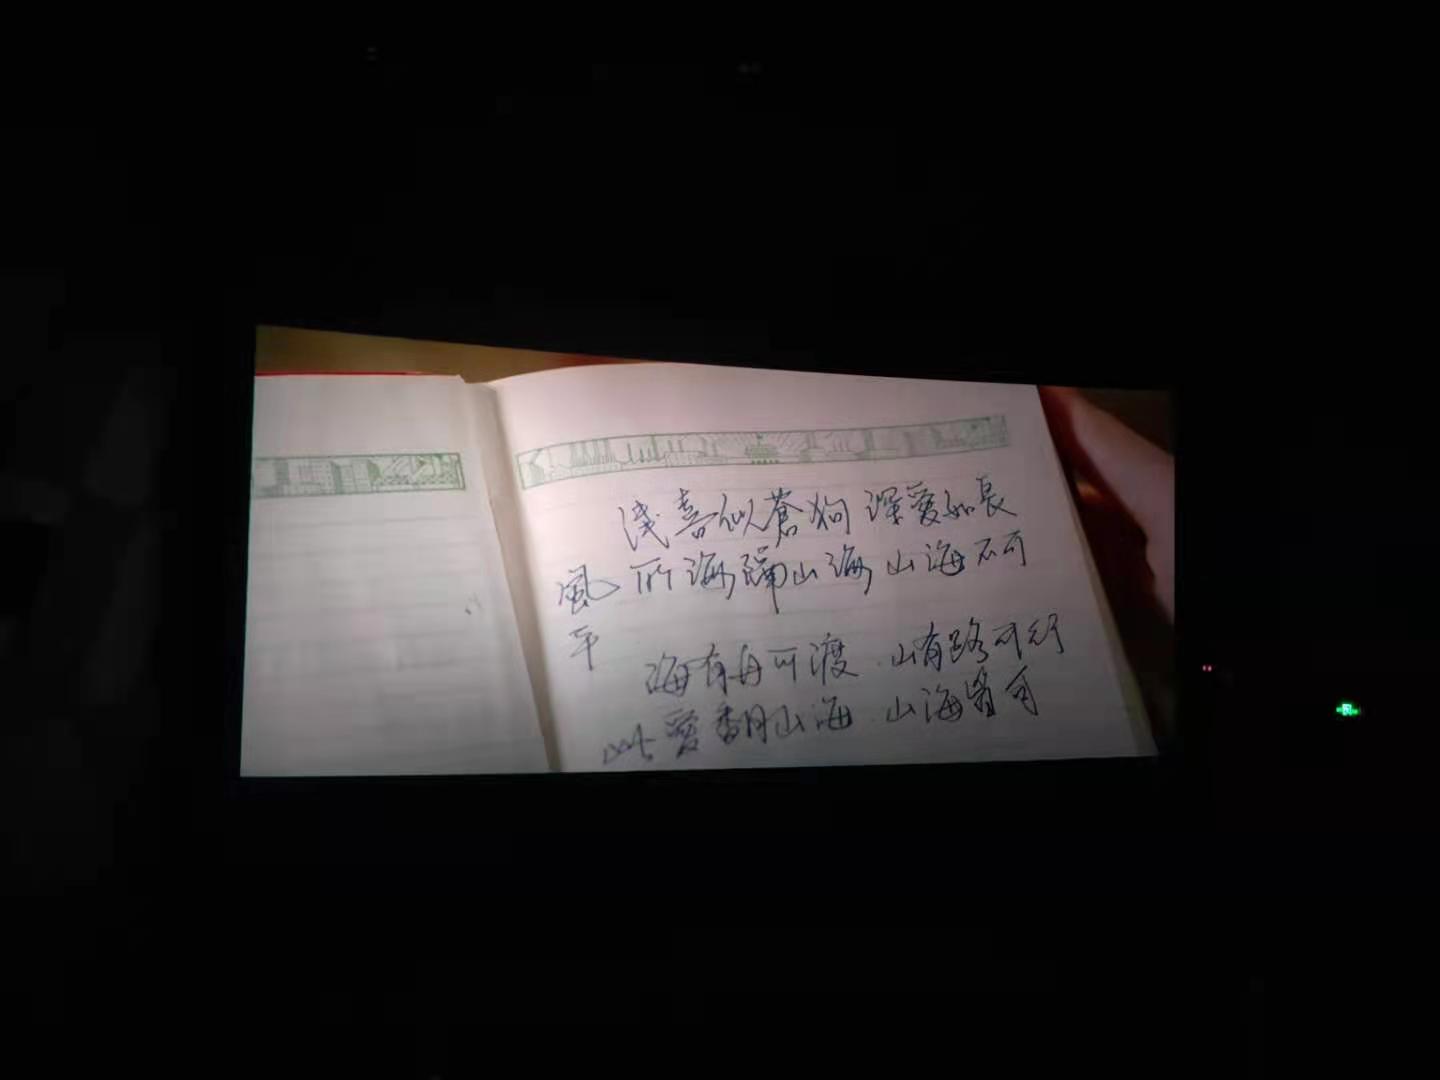 浅喜似蒼狗 深愛如長
風 所海隔山海 山海不可
平
海有舟可渡 山有路可行
此愛翻山海 山海皆可